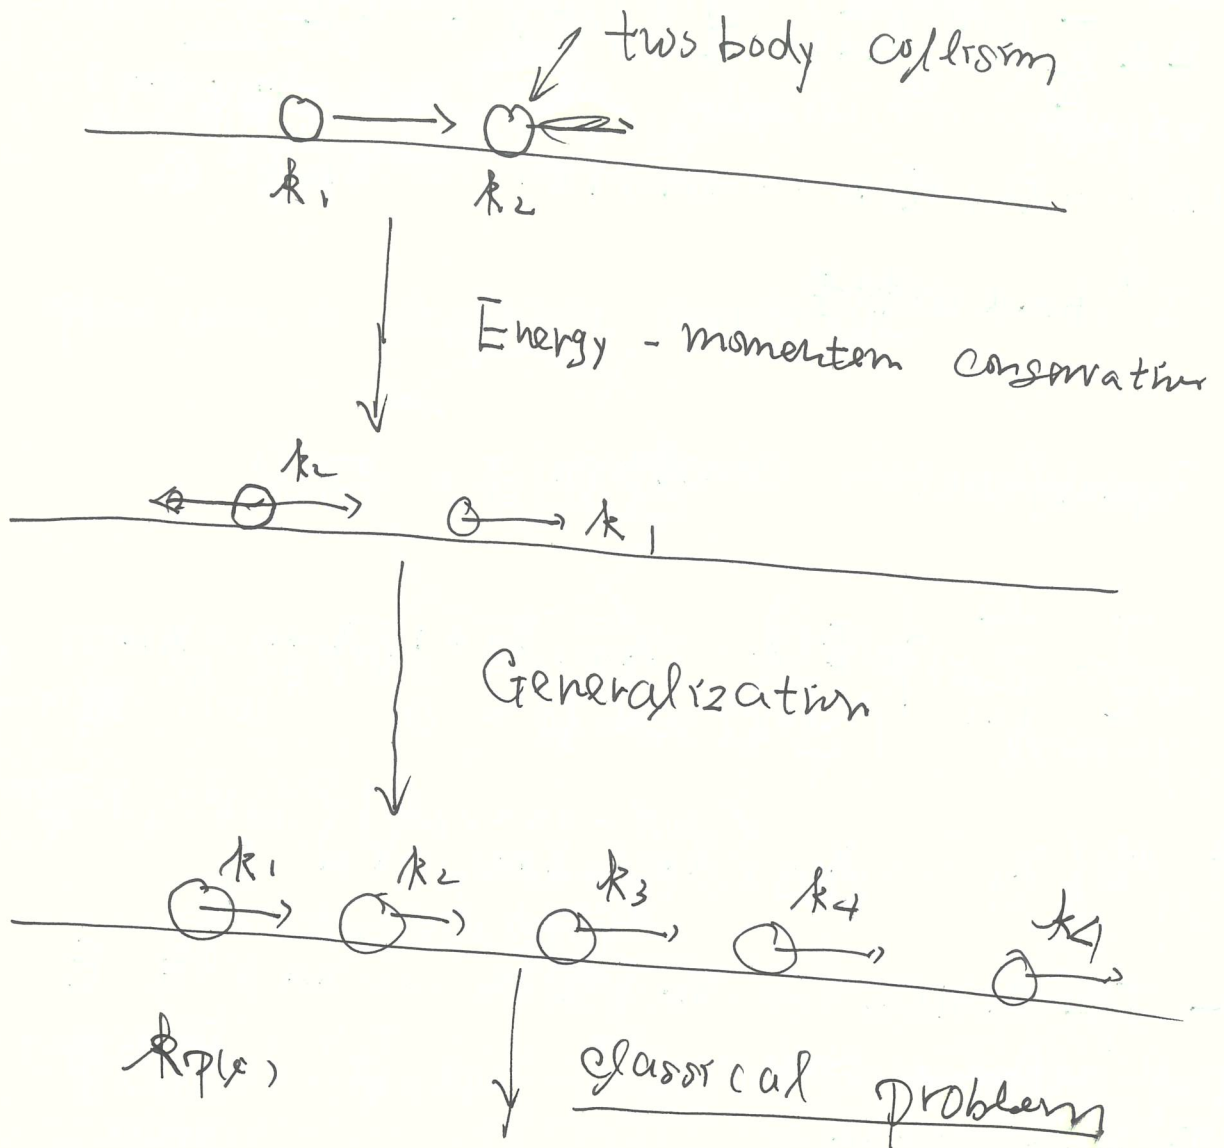 two body collision
k₁ k₂
Energy - momentum conservation
k₂
k₁
Generalization
k₁ k₂ k₃ k₄ k₄
k_P(
classical problem